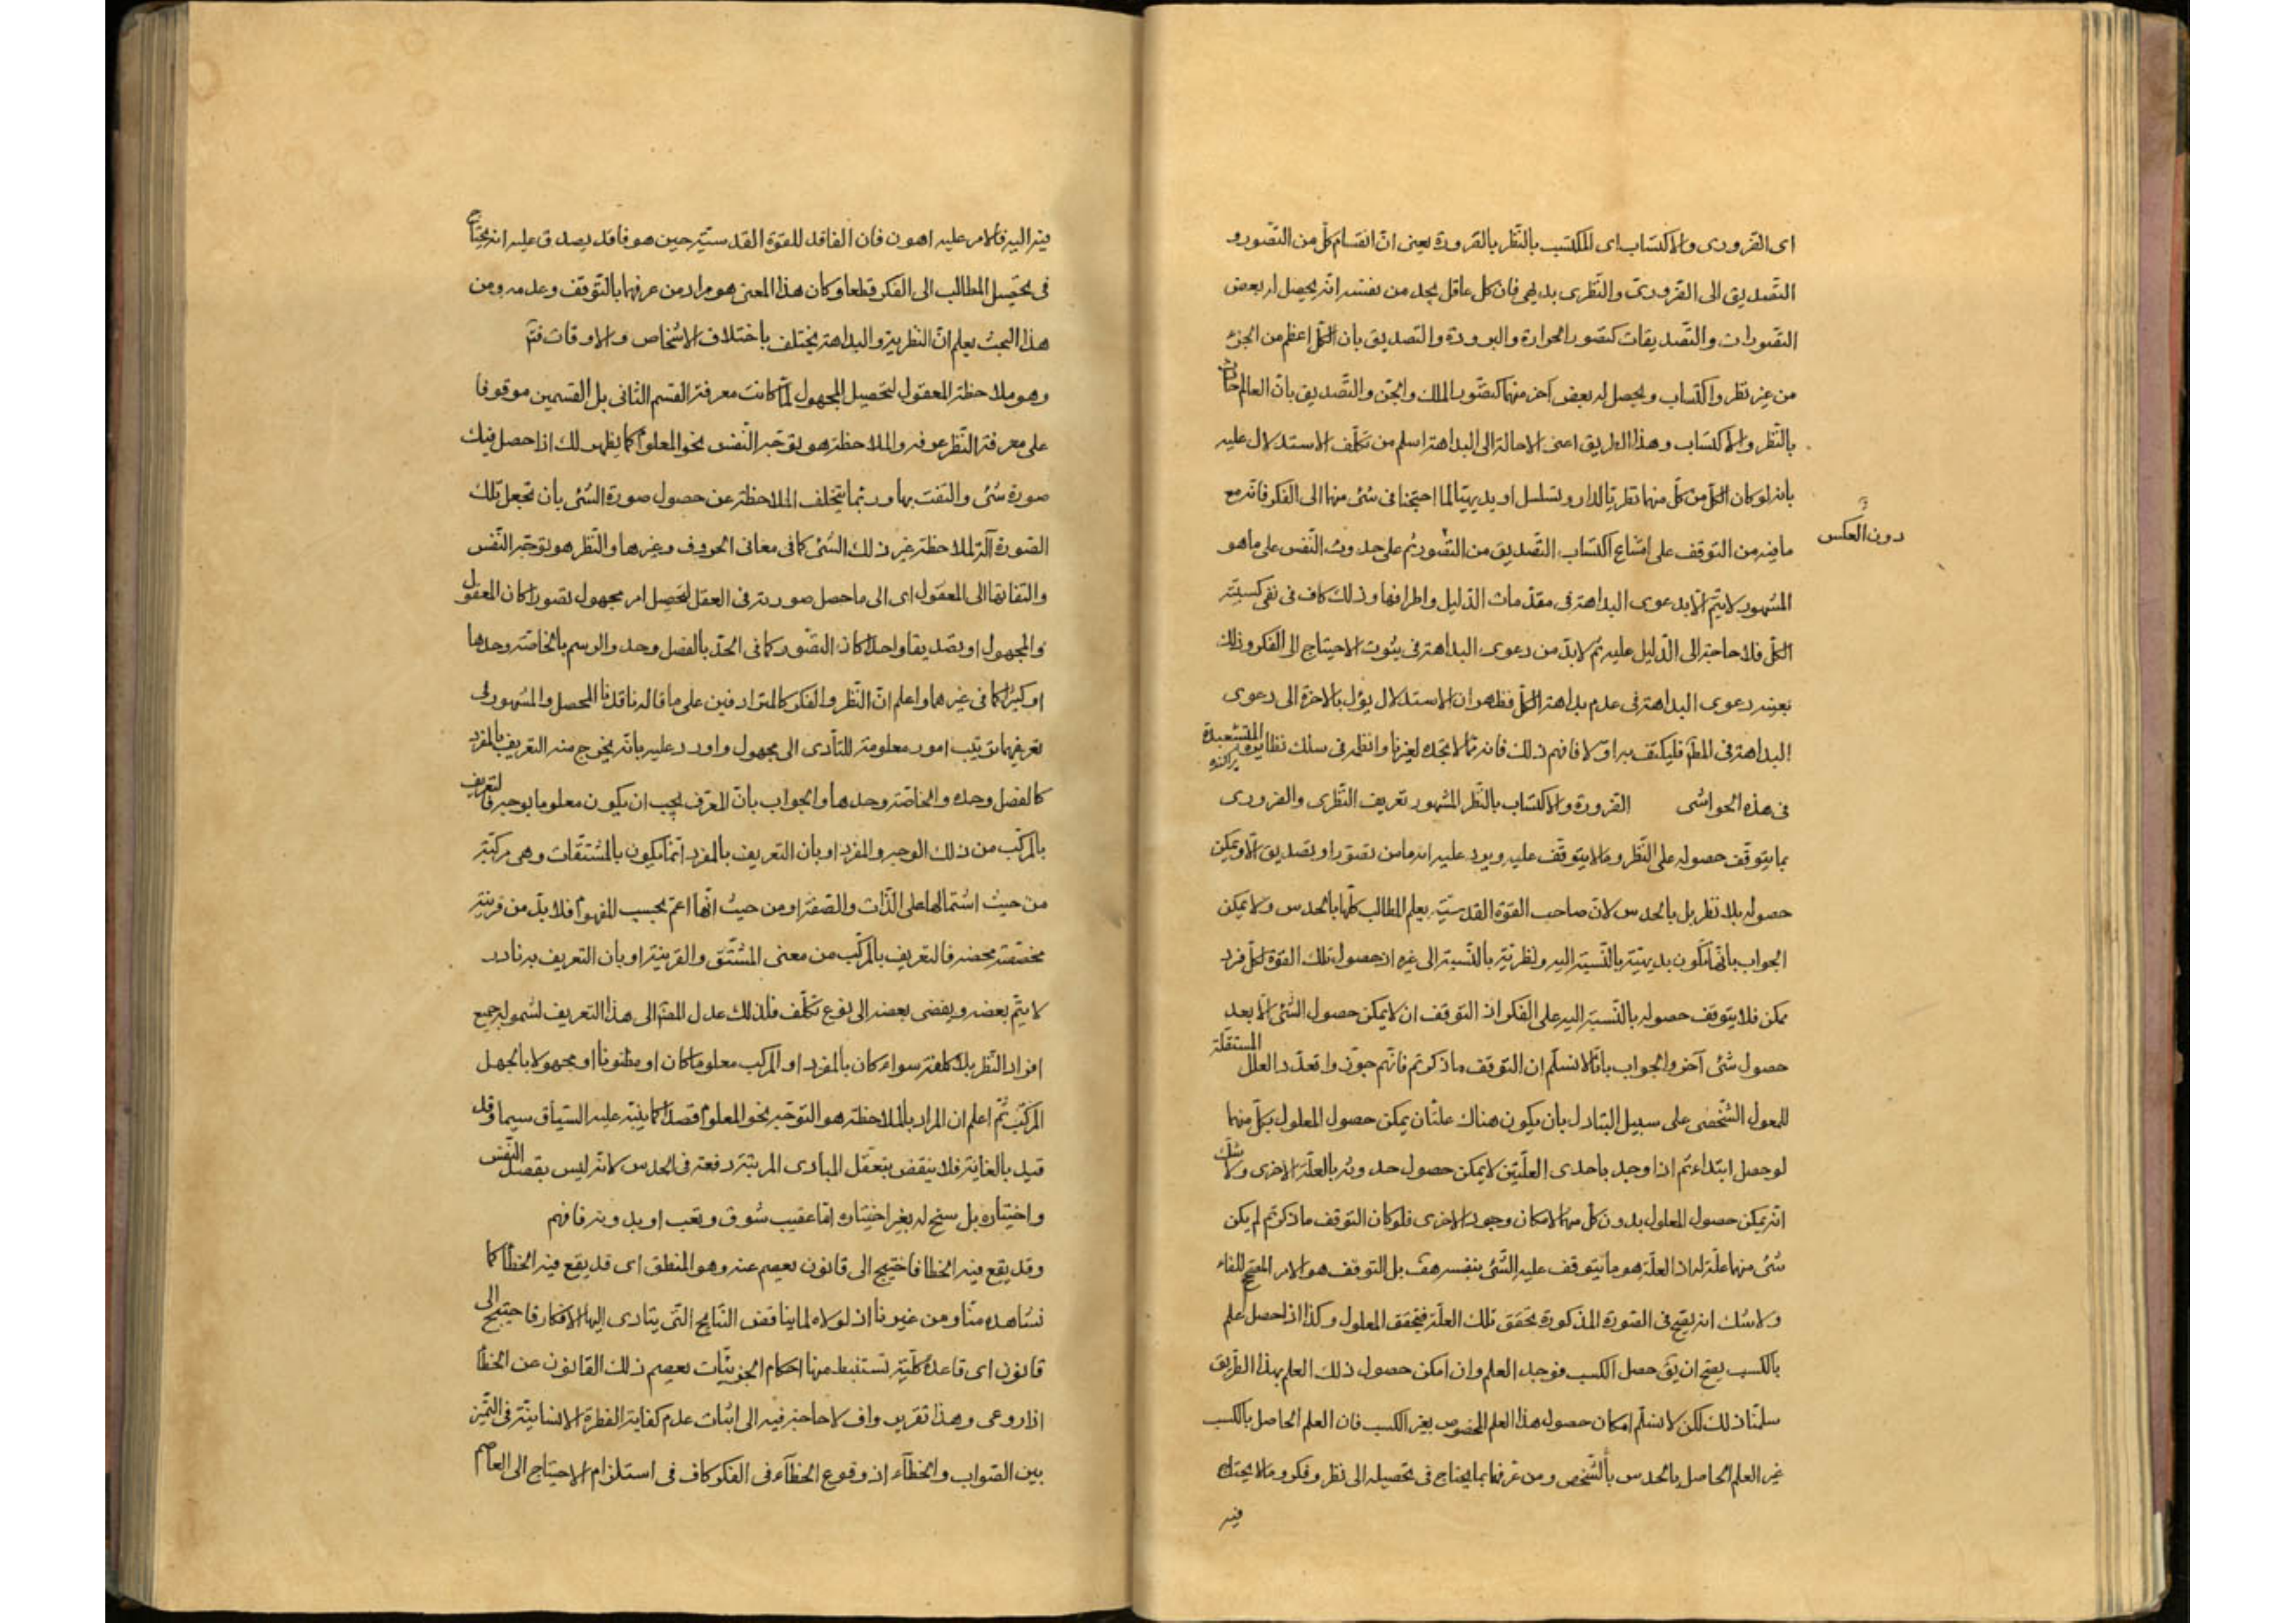 اى الضرورى والاكتساب اى المكتسب بالنّظر بالضرورة يعنى انّ انقسام كلّ من التّصور و
التّصديق الى الضّرورىّ والنّظرى بديهى فانّ كل عاقل يجد من نفسه انّه يحصل له بعض
التّصورات والتّصديقات كتصور الحرارة والبرودة والتصديق بان الكلّ اعظم من الجزء
من غير نظر واكتساب ويحصل له بعض آخر منهما كتصّور الملك والجن والتّصديق بانّ العالم حادث
بالنّظر والاكتساب وهذا الطريق اعنى الاحالة الى البداهة اسلم من تكلّف الاستدلال عليه
بانه لو كان الكلّ من كلّ منهما نظريّا لدار وتسلسل او بديهيّا لما احتجنا فى شئ منهما الى الفكر فانّه مع
دون العكس
ما فيه من التوقف على امتناع اكتساب التّصديق من التّصور ثم على حدوث النّفس على ما هو
المشهور لا يتمّ الّا بدعوى البداهة فى مقدّمات الدّليل واطرافها وذلك كاف فى نفى كسبيّة
الكلّ فلا حاجة الى الدّليل عليه ثم لا بدّ من دعوى البداهة فى ثبوت الاحتياج الى الفكر وذلك
بعينه دعوى البداهة فى عدم بداهة الكلّ فظهر ان الاستدلال يؤل بالآخرة الى دعوى
البداهة فى المط فليكتف به اوّلا فافهم ذلك فانه ممّا لا تجده لغيرنا وانظمه فى سلك نظايره المتشعبة
فى هذه الحواشى الضرورة والاكتساب بالنّظر المشهور تعريف النّظرى والضرورى
بما يتوقّف حصوله على النّظر وما لا يتوقّف عليه ويرد عليه انه ما من تصور او تصديق الّا ويمكن
حصوله بلا نظر بل بالحدس لانّ صاحب القوّة القدسيّة يعلم المطالب كلّها بالحدس ولا يمكن
الجواب بانّها تكون بديهيّة بالنّسبة اليه ونظريّة بالنّسبة الى غيره اذ حصول تلك القوّة لكلّ فرد
ممكن فلا يتوقف حصوله بالنّسبة اليه على الفكر اذ التوقف ان لا يمكن حصول الشّئ الّا بعد
حصول شئ آخر والجواب بانّا لا نسلّم ان التوقف ما ذكرتم فانّهم جوّزوا تعدّد العلل المستقلّة
للمعول الشّخصى على سبيل التبادل بان يكون هناك علتّان يمكن حصول المعلول بكلّ منهما
لو حصل ابتداء ثم اذا وجد باحدى العلّتين لا يمكن حصول حدوثه بالعلّة الاخرى ولا شكّ
انّه يمكن حصول المعلول بدون كل منهما لامكان وجود الاخرى فلو كان التوقف ما ذكرتم لم يكن
شئ منهما علّة له اذ العلّة هو ما يتوقف عليه الشّئ بنفسه هف بل التوقف هو الامر المصحح للفاء
ولا شك انه يصح فى الصّورة المذكورة تحقق تلك العلّة فيتحقق المعلول وكذا اذا حصل علم
بالكسب يصح ان يقَ حصل الكسب فوجد العلم وان امكن حصول ذلك العلم بهذا الطّريق
سلمّنا ذلك لكن لا نسلّم امكان حصول هذا العلم المخصوص بغير الكسب فان العلم الحاصل بالكسب
غير العلم الحاصل بالحدس بالشّخص ومن عرفهما بما يحتاج فى تحصيله الى نظر وفكر وما لا يحتاج
فيه
فيه اليه فالامر عليه اهون فان الفاقد للقوّة القدسيّة حين هو فاقد يصدق عليه انه يحتاج
فى تحصيل المطالب الى الفكر قطعا وكان هذا المعنى هو مراد من عرفهما بالتّوقف وعدمه ومن
هذا البحث يعلم انّ النّظرية والبداهة يختلف باختلاف الاشخاص والاوقات فتم
وهو ملاحظة المعقول لتحصيل المجهول لمّا كانت معرفة القسم الثانى بل القسمين موقوفا
على معرفة النّظر عرفه والملاحظة هو توجّه النّفس نحو المعلوم كما يظهر لك اذا حصل فيك
صورة شئ والتفت بها وربّما يتخلف الملاحظة عن حصول صورة الشّئ بان تجعل تلك
الصّورة آلة لملاحظة غير ذلك الشّئ كما فى معانى الحروف وغيرها والنّظر هو توجّه النّفس
والتفاتها الى المعقول اى الى ما حصل صورته فى العقل لتحصيل امر مجهول تصورا كان المعقول
والمجهول او تصديقا واحدا كان التصّور كما فى الحدّ بالفصل وحده والرسم بالخاصّة وحدها
او كثيرا كما فى غيرهما واعلم انّ النّظر والفكر كالمترادفين على ما قاله ناقد المحصل والمشهور فى
تعريفهما ترتيب امور معلومة للتأدى الى مجهول واورد عليه بانّه يخرج منه التعريف بالمفرد
كالفصل وحده والخاصّة وحدها والجواب بانّ المعّرف يجب ان يكون معلوما بوجه فالتعريف
بالمركّب من ذلك الوجه والمفرد او بان التعريف بالمفرد انّما يكون بالمشتقّات وهى مركبّة
من حيث اشتمالها على الذّات والصّفة او من حيث انّها اعمّ بحسب المفهوم فلا بدّ من قرينة
مخصّصة فالتعريف بالمركّب من معنى المشّتق والقرينة او بان التعريف به نادر
لا يتمّ بعضه ويفضى بعضه الى نوع تكلّف فلذلك عدل المصّ الى هذا التعريف لشموله جميع
افراد النّظر بلا كلفة سواء كان بالمفرد او المركب معلوما كان او مظنونا او مجهولا بالجهل
المركّب ثمّ اعلم ان المراد بالملاحظة هو التوجّه نحو المعلوم قصدا كما ينبّه عليه السّياق سيما وقد
قيد بالغاية فلا ينقض بتعقّل المبادى المرتبّة دفعة فى الحدس لانّه ليس بقصد النّفس
واختياره بل سنح له بغير اختياره امّا عقيب شوق وتعب او بدونه فافهم
وقد يقع فيه الخطا فاحتيج الى قانون يعصم عنه وهو المنطق اى قد يقع فيه الخطأ كما
نشاهده منّا ومن غيرنا اذ لولاه لما يناقض النّتايج الّتى يتادى اليها الافكار فاحتيج الى
قانون اى قاعدة كلّية تستنبط منها احكام الجزئيّات يعصم ذلك القانون عن الخطأ
اذا روعى وهذا تقرير واف لا حاجة فيه الى اثبات عدم كفاية الفطرة الانسانيّة فى التّميز
بين الصّواب والخطآء اذ وقوع الخطآء فى الفكر كاف فى استلزام الاحتياج الى العاصم